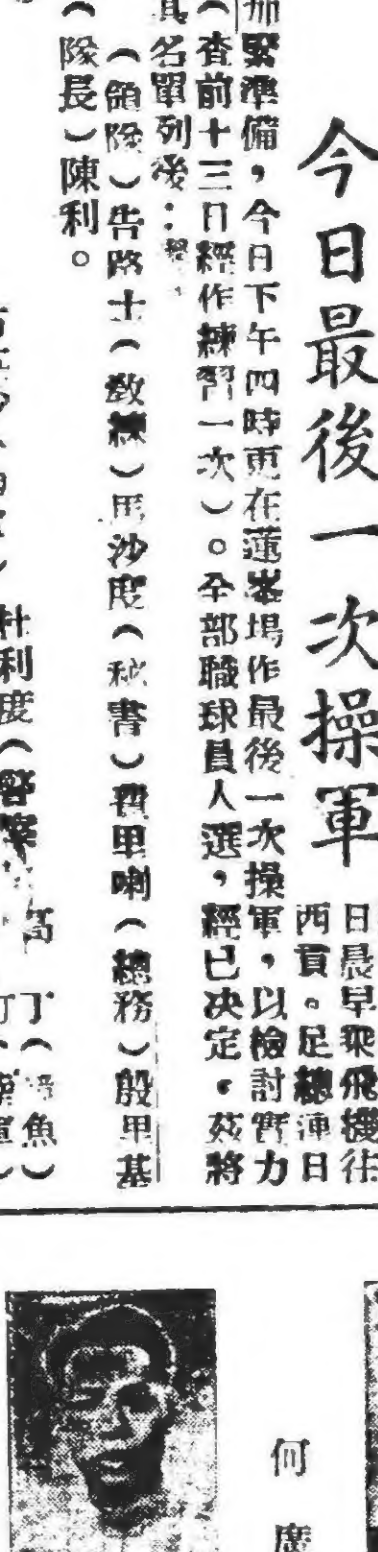 今日最後一次操軍
日晨早乘飛機往
西貢。足總連日
加緊準備，今日下午四時更在蓮峯塲作最後一次操軍，以檢討實力
（查前十三日經作練習一次）。全部職球員人選，經已決定。茲將
其名單列後：
（領隊）告路士（敎練）馬沙度（秘書）費里喇（總務）殷甲基
（隊長）陳利。
杜利度（警察
何